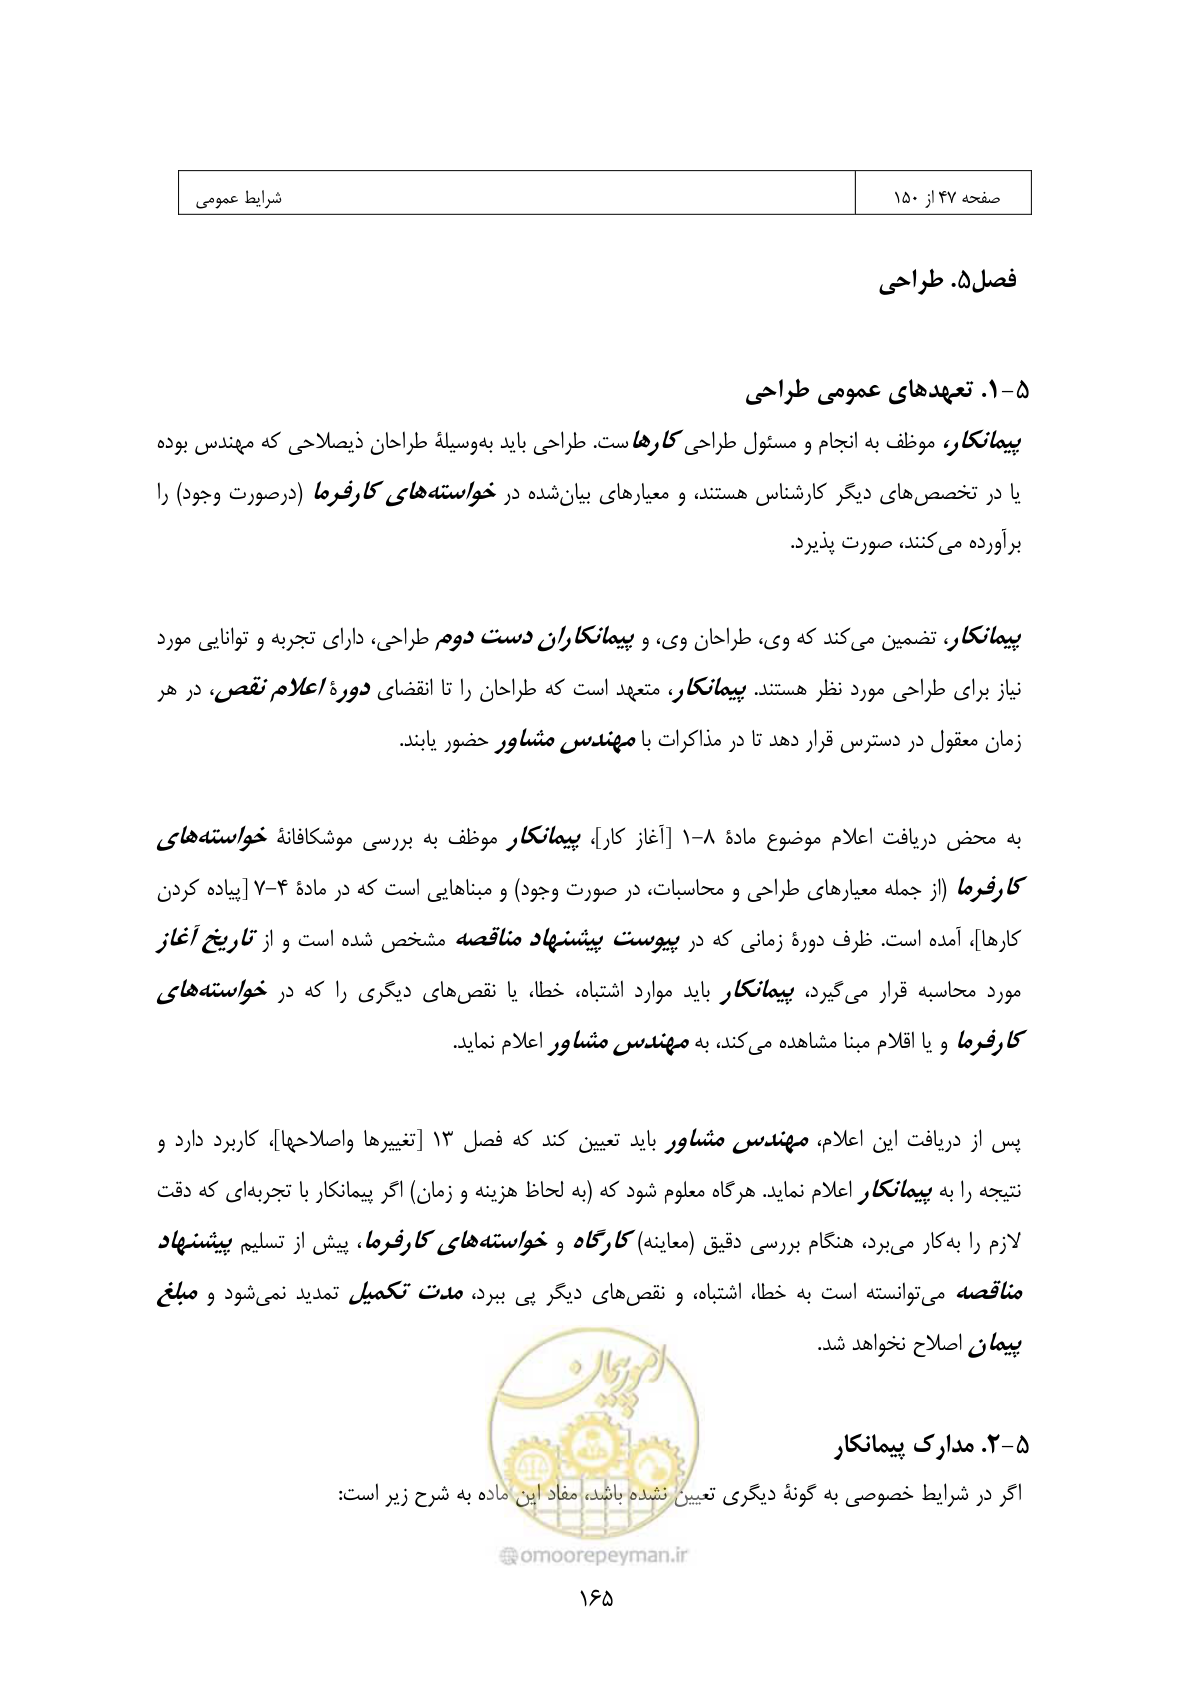 صفحه ۴۷ از ۱۵۰
شرایط عمومی
فصل۵. طراحی
۵-۱. تعهدهای عمومی طراحی
پیمانکار، موظف به انجام و مسئول طراحی کارهاست. طراحی باید به‌وسیلۀ طراحان ذیصلاحی که مهندس بوده
یا در تخصص‌های دیگر کارشناس هستند، و معیارهای بیان‌شده در خواسته‌های کارفرما (درصورت وجود) را
برآورده می‌کنند، صورت پذیرد.
پیمانکار، تضمین می‌کند که وی، طراحان وی، و پیمانکاران دست دوم طراحی، دارای تجربه و توانایی مورد
نیاز برای طراحی مورد نظر هستند. پیمانکار، متعهد است که طراحان را تا انقضای دورۀ اعلام نقص، در هر
زمان معقول در دسترس قرار دهد تا در مذاکرات با مهندس مشاور حضور یابند.
به محض دریافت اعلام موضوع مادۀ ۸-۱ [آغاز کار]، پیمانکار موظف به بررسی موشکافانۀ خواسته‌های
کارفرما (از جمله معیارهای طراحی و محاسبات، در صورت وجود) و مبناهایی است که در مادۀ ۴-۷ [پیاده کردن
کارها]، آمده است. ظرف دورۀ زمانی که در پیوست پیشنهاد مناقصه مشخص شده است و از تاریخ آغاز
مورد محاسبه قرار می‌گیرد، پیمانکار باید موارد اشتباه، خطا، یا نقص‌های دیگری را که در خواسته‌های
کارفرما و یا اقلام مبنا مشاهده می‌کند، به مهندس مشاور اعلام نماید.
پس از دریافت این اعلام، مهندس مشاور باید تعیین کند که فصل ۱۳ [تغییرها واصلاحها]، کاربرد دارد و
نتیجه را به پیمانکار اعلام نماید. هرگاه معلوم شود که (به لحاظ هزینه و زمان) اگر پیمانکار با تجربه‌ای که دقت
لازم را به‌کار می‌برد، هنگام بررسی دقیق (معاینه) کارگاه و خواسته‌های کارفرما، پیش از تسلیم پیشنهاد
مناقصه می‌توانسته است به خطا، اشتباه، و نقص‌های دیگر پی ببرد، مدت تکمیل تمدید نمی‌شود و مبلغ
پیمان اصلاح نخواهد شد.
امور پیمان
۵-۲. مدارک پیمانکار
اگر در شرایط خصوصی به گونۀ دیگری تعیین نشده باشد، مفاد این ماده به شرح زیر است:
@omoorepeyman.ir
۱۶۵